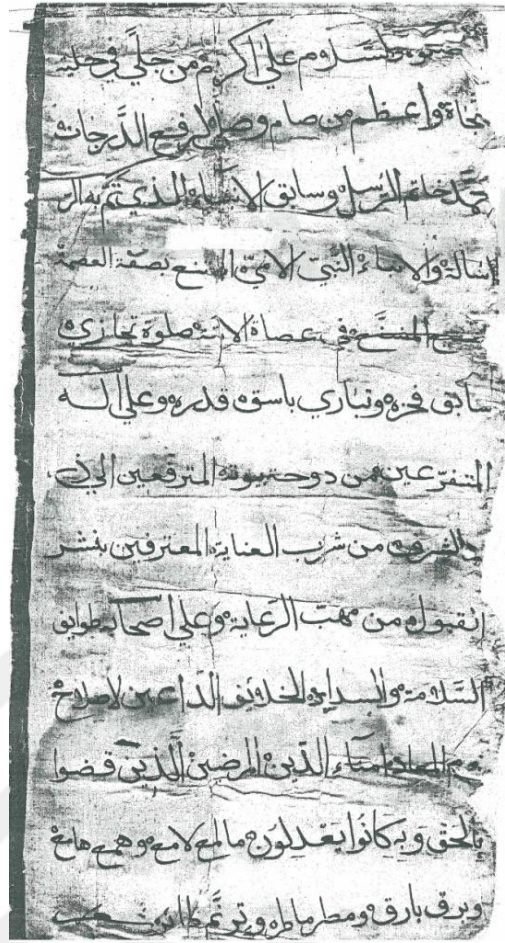 والسلام على أكرم من جلّي في حلبة
نجاة وأعظم من صام وصلى الرفيع الدرجات
محمد خاتم الرسل وسابق الانبياء الذي تم به الر
سالة والانباء النبي الامي بصفة العصمة
المشفع في عصاة الامة صلوة تجازي
سابق فخره وتباري باسق قدره وعلى اله
المتفرعين من دوحة نبوته المترقعين الى
الشرف من شرب العناية المعترفين بنشر
القبول من مهب الرعاية وعلى اصحابه طوايف
السلامة والسداد الخلايف الداعين لاصلاح
امناء الدين المرضيين الذين قضوا
بالحق وبه كانوا يعدلون ما لمع لامع وهمع هامع
وبرق بارق ومطر ماطر وترنم طائر